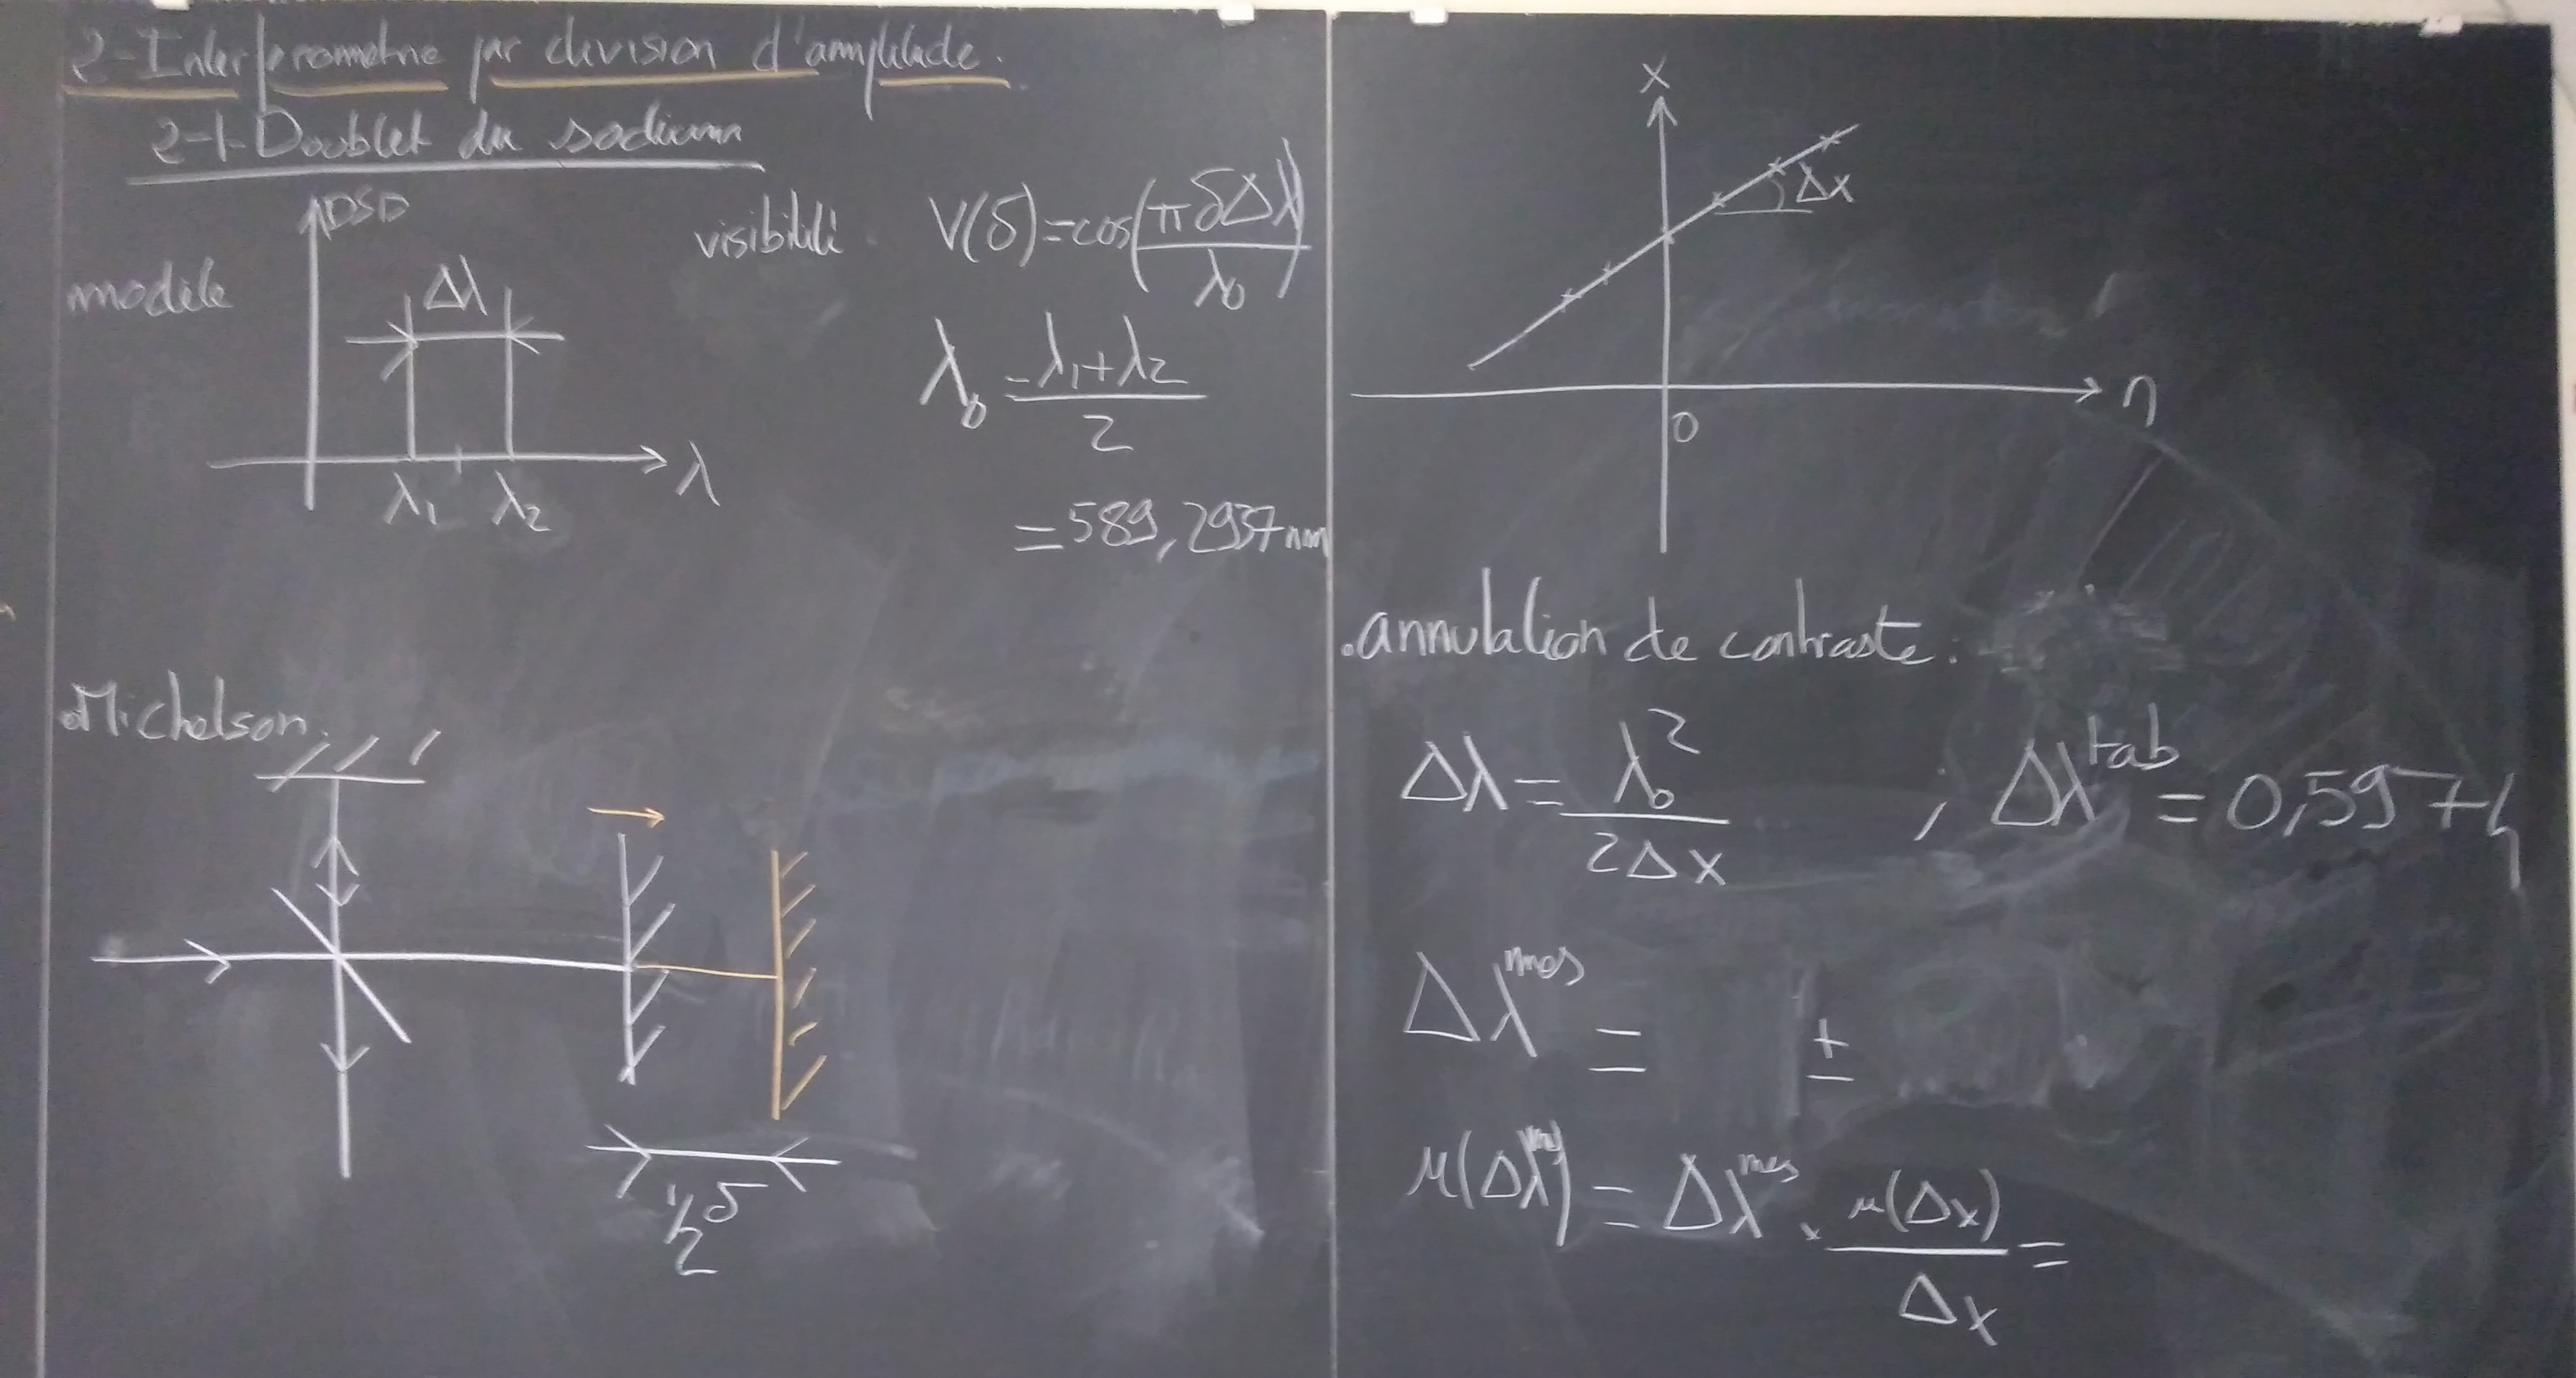 2-Interferometrie par division d'amplitude.
2-1-Doublet du sodium
DSD
modèle
Δλ
λ₁ λ₂
λ
visibilité
V(δ)=cos(πδΔλ/λ₀)
λ₀ = (λ₁+λ₂)/2
= 589,2937nm
.Michelson.
½δ
x
Δx
0
n
.annulation de contraste :
Δλ = λ₀²/(2Δx) ; Δλ^tab = 0,597
Δλ^mes = ±
u(Δλ^mes) = Δλ^mes . u(Δx)/Δx =